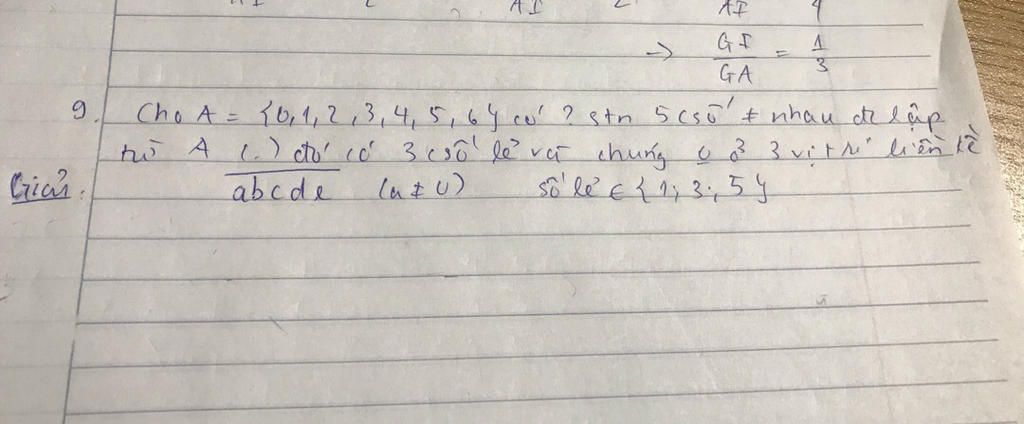 AI 2 AI 2 AI 4
→ GI/GA = 1/3
9. Cho A = {0,1,2,3,4,5,6} có ? stn 5 csố ≠ nhau đc lập
từ A (.) đó có 3 csố lẻ và chúng o ở 3 vị trí liền kề
Giải: abcde (a ≠ 0) số lẻ ∈ {1; 3; 5}